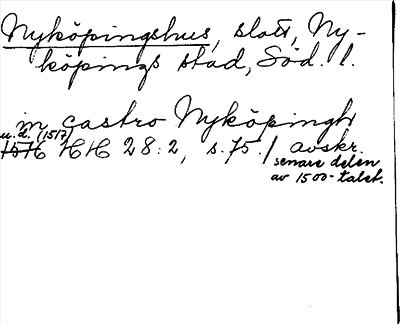 Nyköpingshus, slott, Ny-
köpings stad, Söd. l.
in castro Nyköpingh
u.d. (1517)
1516 HH 28:2, s. 75. / avskr.
senare delen
av 1500-talet.